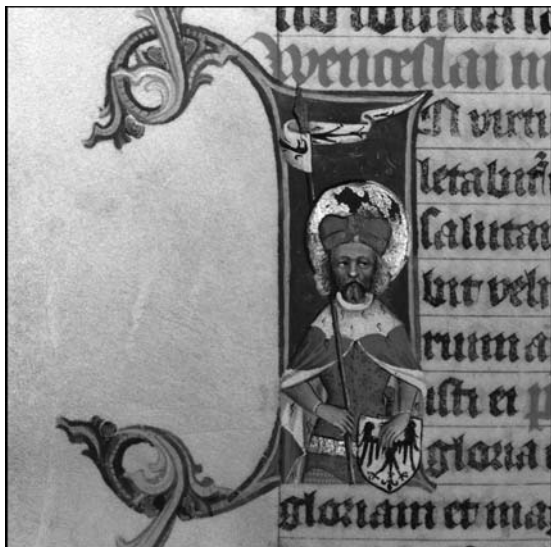 Wenceslai m
N virtu
letabit͛
saluta
bit veh
rum a
isti et p
gloria
gloriam et ma